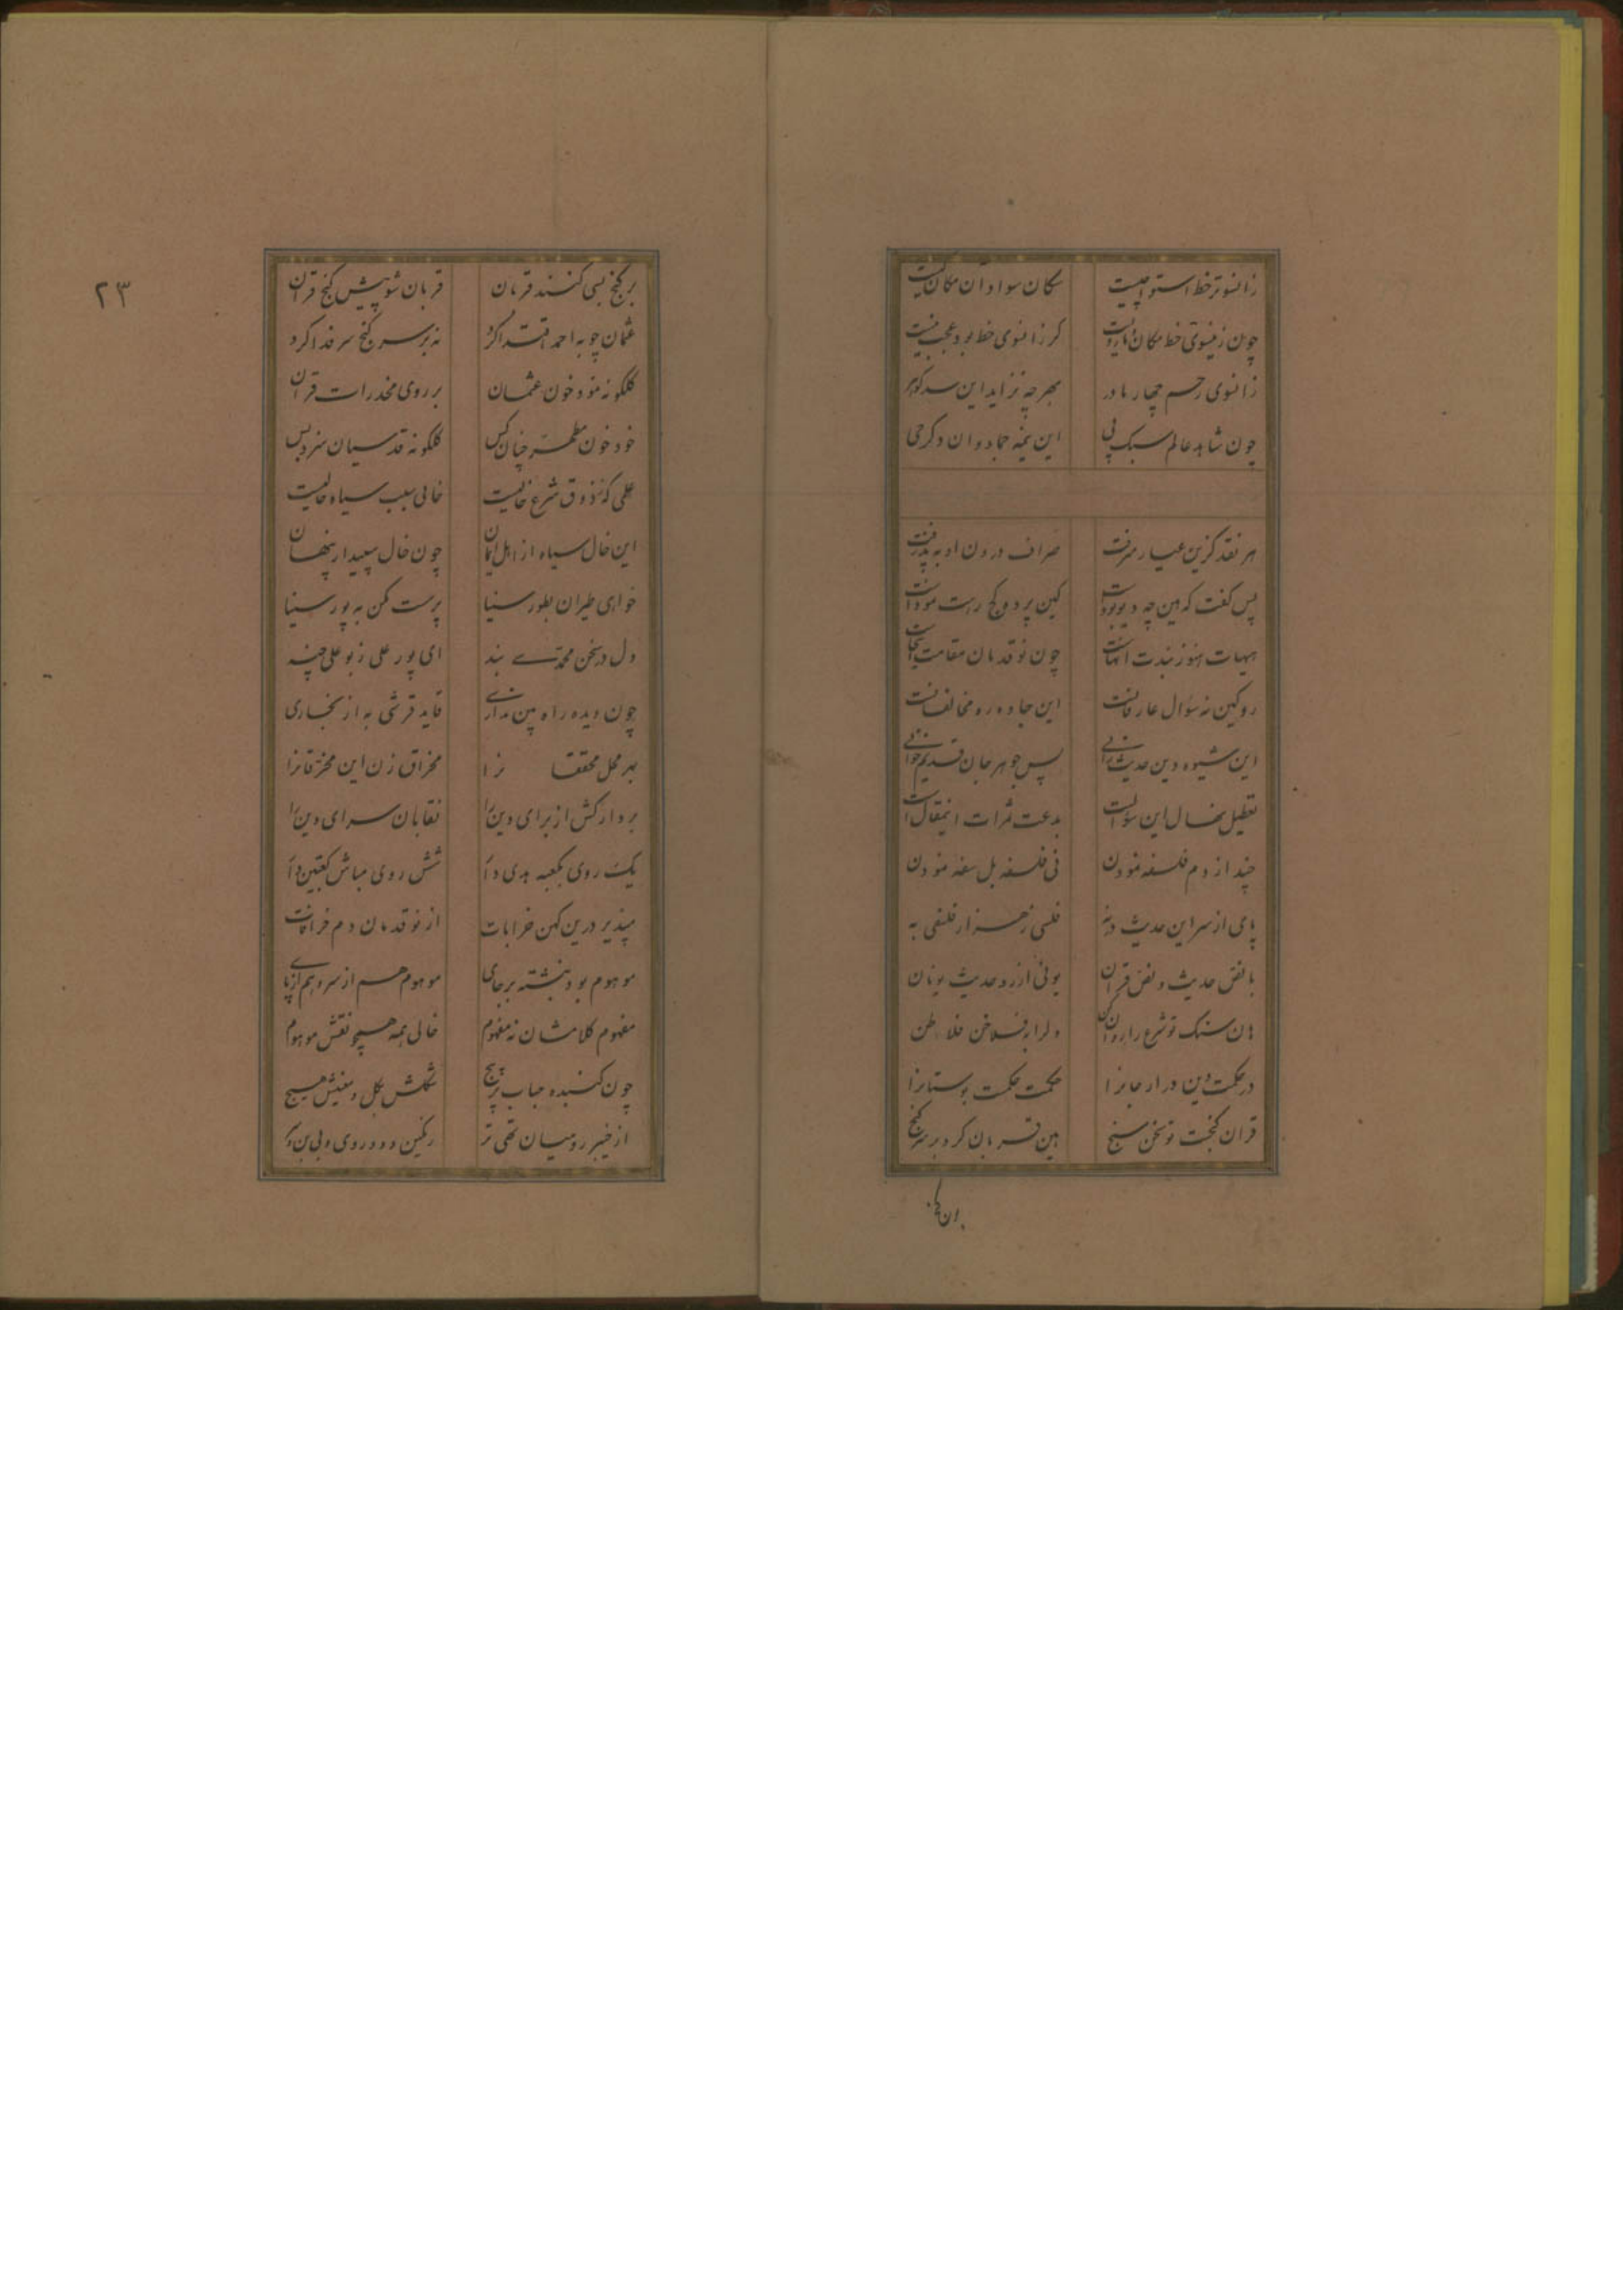 زانسوتر خط استوا چیست سکان سواد آن مکان کیست
چون زینسوی خط مکان کر زانسوی خط بود عجب نیست
زانسوی رحم چهار مادر بهر چه نزاید این سه کوهر
چون شاهد عالم سبک پی این نیمه جماد و ان دکر حی
هر نقد کزین عیار میرفت صراف درون او به پذرفت
پس کفت که هین چه دیو بودت کین پرده کج راست نمودت
هیهات هنوز بندت انهاست چون نو قدمان مقامت اینجاست
رو کین نه سؤال عارفانست این جاده ره مخالفانست
این شیوه دین حدیث رانی پس جوهر جان قدیم خوانی
تعطیل نهال این سؤالست بدعت ثمرات اینمقال است
چند از دم فلسفه نمودن نی فلسفه بل سفه نمودن
پای از سر این حدیث در نه فلسی ز هزار فلسفی به
با نقش حدیث و نص قران یونی ارزد حدیث یونان
هان سنک تو شرع را روان کن ولرا به فلاخن فلاطن
در حکمت دین درار جانرا حکمت حکمت بوستانرا
قران کنجست تو سخن سنج هین قربان کرد بر سر کنج
بران کنج
۲۳
بر کنج بسی کنند قربان قربان شو پیش کنج قران
عثمان چو به احمد اقتدا کرد نه بر سر کنج سر فدا کرد
کلکونه نمود خون عثمان بر روی مخدرات قران
خود خون مطهر چنان کس کلکونه قدسیان سزد بس
علمی که ز ذوق شرع خالیست خالی سبب سیاه حالیست
این خال سیاه از اهل ایمان چون خال سپید دار پنهان
خواهی طیران بطور سینا پرست مکن به پور سینا
دل در سخن محمدی بند ای پور علی ز بو علی چند
چون دیده راه بین نداری قاید قرشی به از بخاری
بهر محل محققانرا مخراق زن این مخرقانرا
بر دار کش از برای دین را نقابان سرای دین را
یک روی بکعبه هدی دار شش روی مباش کعبتین وار
مپذیر درین کهن خرابات از نو قدمان دم خرافات
موهوم بود نبشته بر جای موهوم هم از سر و هم از پای
مفهوم کلامشان نه مفهوم خالی همه همچو نقش موهوم
چون کنبده حباب پر پیچ شکلش بکل و معنیش هیچ
از خیبر رومیان تهی تر رنکین و دو روی و بی بن و